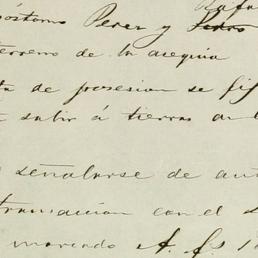 Rafa
óstomo Perez y Pedro
terreno de la asequia
ta de prosesion se fij
salir á tierras
señalarse de
transaccion con el
marcado A. f.s